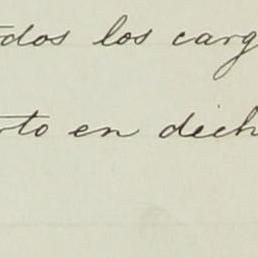 dos los carg
rto en dich